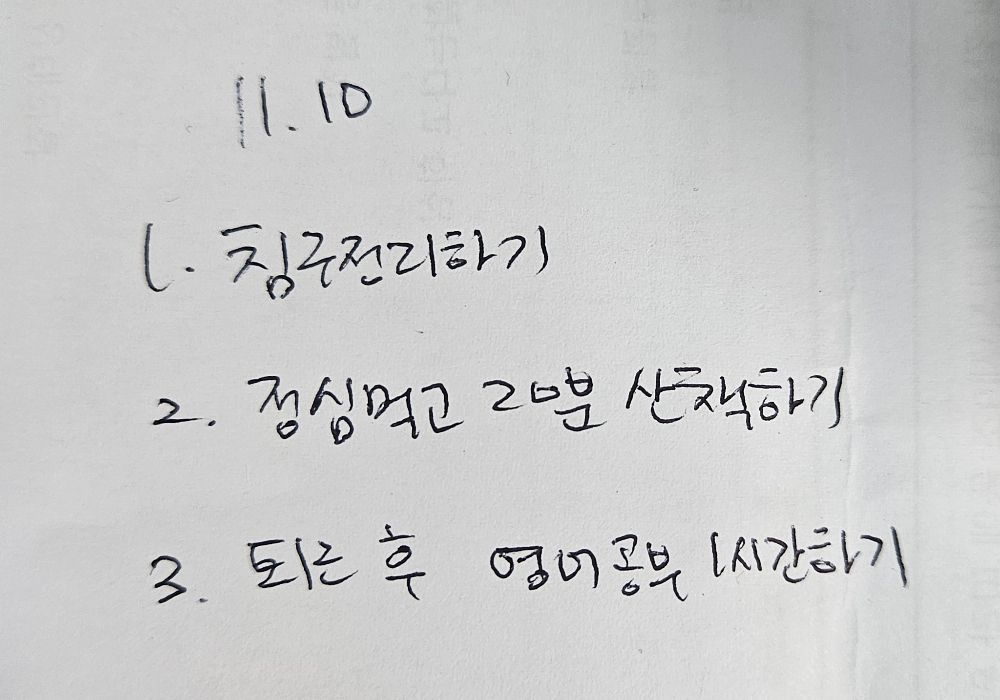 11.10
1. 침구전리하기
2. 정심먹고 20분 산책하기
3. 퇴근 후 영어공부 1시간하기